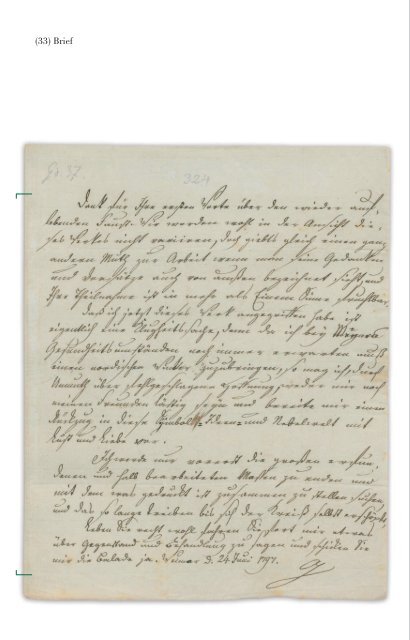 (33) Brief
324
Dank für Ihre ersten Worte über den wieder auf-
lebenden Faust. Wir werden wohl in der Ansicht die-
ses Werkes nicht variiren, doch giebts gleich einen ganz
andern Muth zur Arbeit wenn man seine Gedanken
und Vorsätze auch von außen bezeichnet sieht, und
Ihre Theilnahme ist in mehr als Einem Sinne fruchtbar.
Daß ich jetzt dieses Werk angegriffen habe ist
eigentlich eine Klugheitssache, denn da ich bey Meyers
Gesundheitsumständen noch immer erwarten muß
einen nordischen Winter zuzubringen, so mag ich, durch
Unmuth über fehlgeschlagene Hoffnung, weder mir noch
meinen Freunden lästig seyn und bereite mir einen
Rückzug in diese Symbol- Ideen- und Nebelwelt mit
Lust und Liebe vor.
Ich werde nur vorerst die großen erfun-
denen und halb bearbeiteten Massen zu enden und
mit dem was gedruckt ist zusammen zu stellen suchen,
und das so lange treiben bis sich der Kreis selbst erschöpft.
Leben Sie recht wohl fahren Sie fort mir etwas
über Gegenstand und Behandlung zu sagen und schicken Sie
mir die Balade ja. Weimar d. 24 Juni 1797.
G